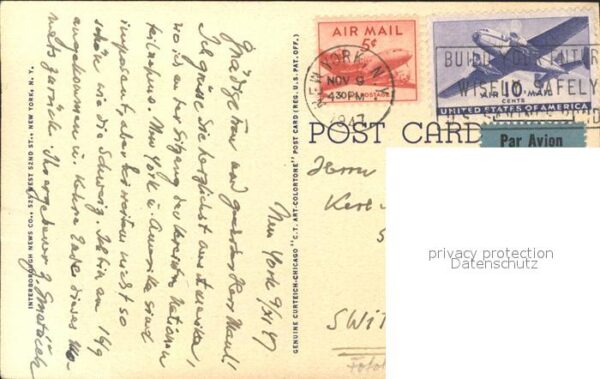 New York 9/XI 47
Frau und Herr
Ich grüsse Sie herzlichst aus Amerika,
wo ich an der Sitzung der Vereinten Nationen
teilnehme. New York u. Amerika sind
imposant, aber bei weitem nicht so
schön wie die Schweiz. Ich bin am 16/9
angekommen u. kehre Ende dieses Mo-
nats zurück. Ihr ergebener
INTERBOROUGH NEWS CO., 57 WEST 52ND ST., NEW YORK, N. Y.
GENUINE CURTEICH-CHICAGO "C. T. ART-COLORTONE" POST CARD (REG. U.S. PAT. OFF.)
AIR MAIL
5¢
NEW YORK, N.Y.
NOV 9
430PM
1947
BUILD YOUR FUTURE
WISELY SAFELY
U.S. SAVINGS BONDS
10
CENTS
AIR MAIL
UNITED STATES OF AMERICA
POST CARD
Par Avion
Herrn
SWIT
privacy protection
Datenschutz